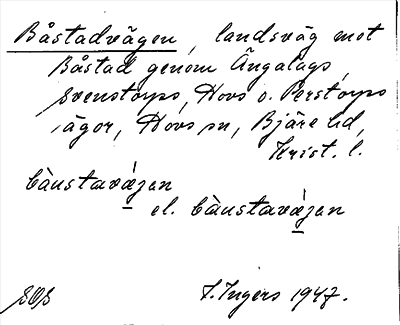 Båstadvägen, landsväg mot
Båstad genom Ängalags,
Svenstorps, Hovs o. Perstorps
ägor, Hovs sn, Bjäre hd,
Krist. l.
bàustavä́gen
el. bàustavä́gen
I. Ingers 1947.